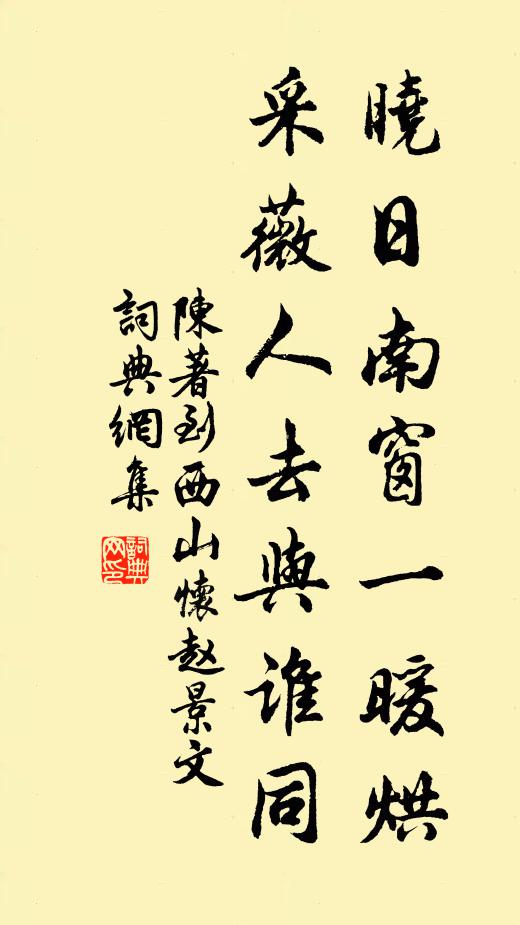 曉日南窗一暖烘
采薇人去與誰同
陳著到西山懷赵景文
詞典網集
詞典网印